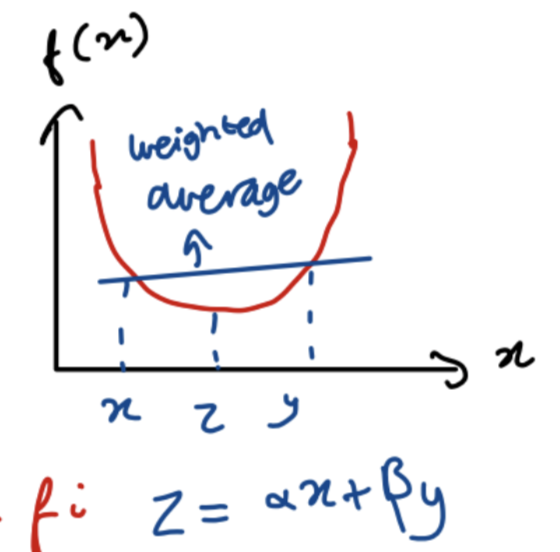 f(x)
weighted
average
x
x z y
fi z = αx + βy